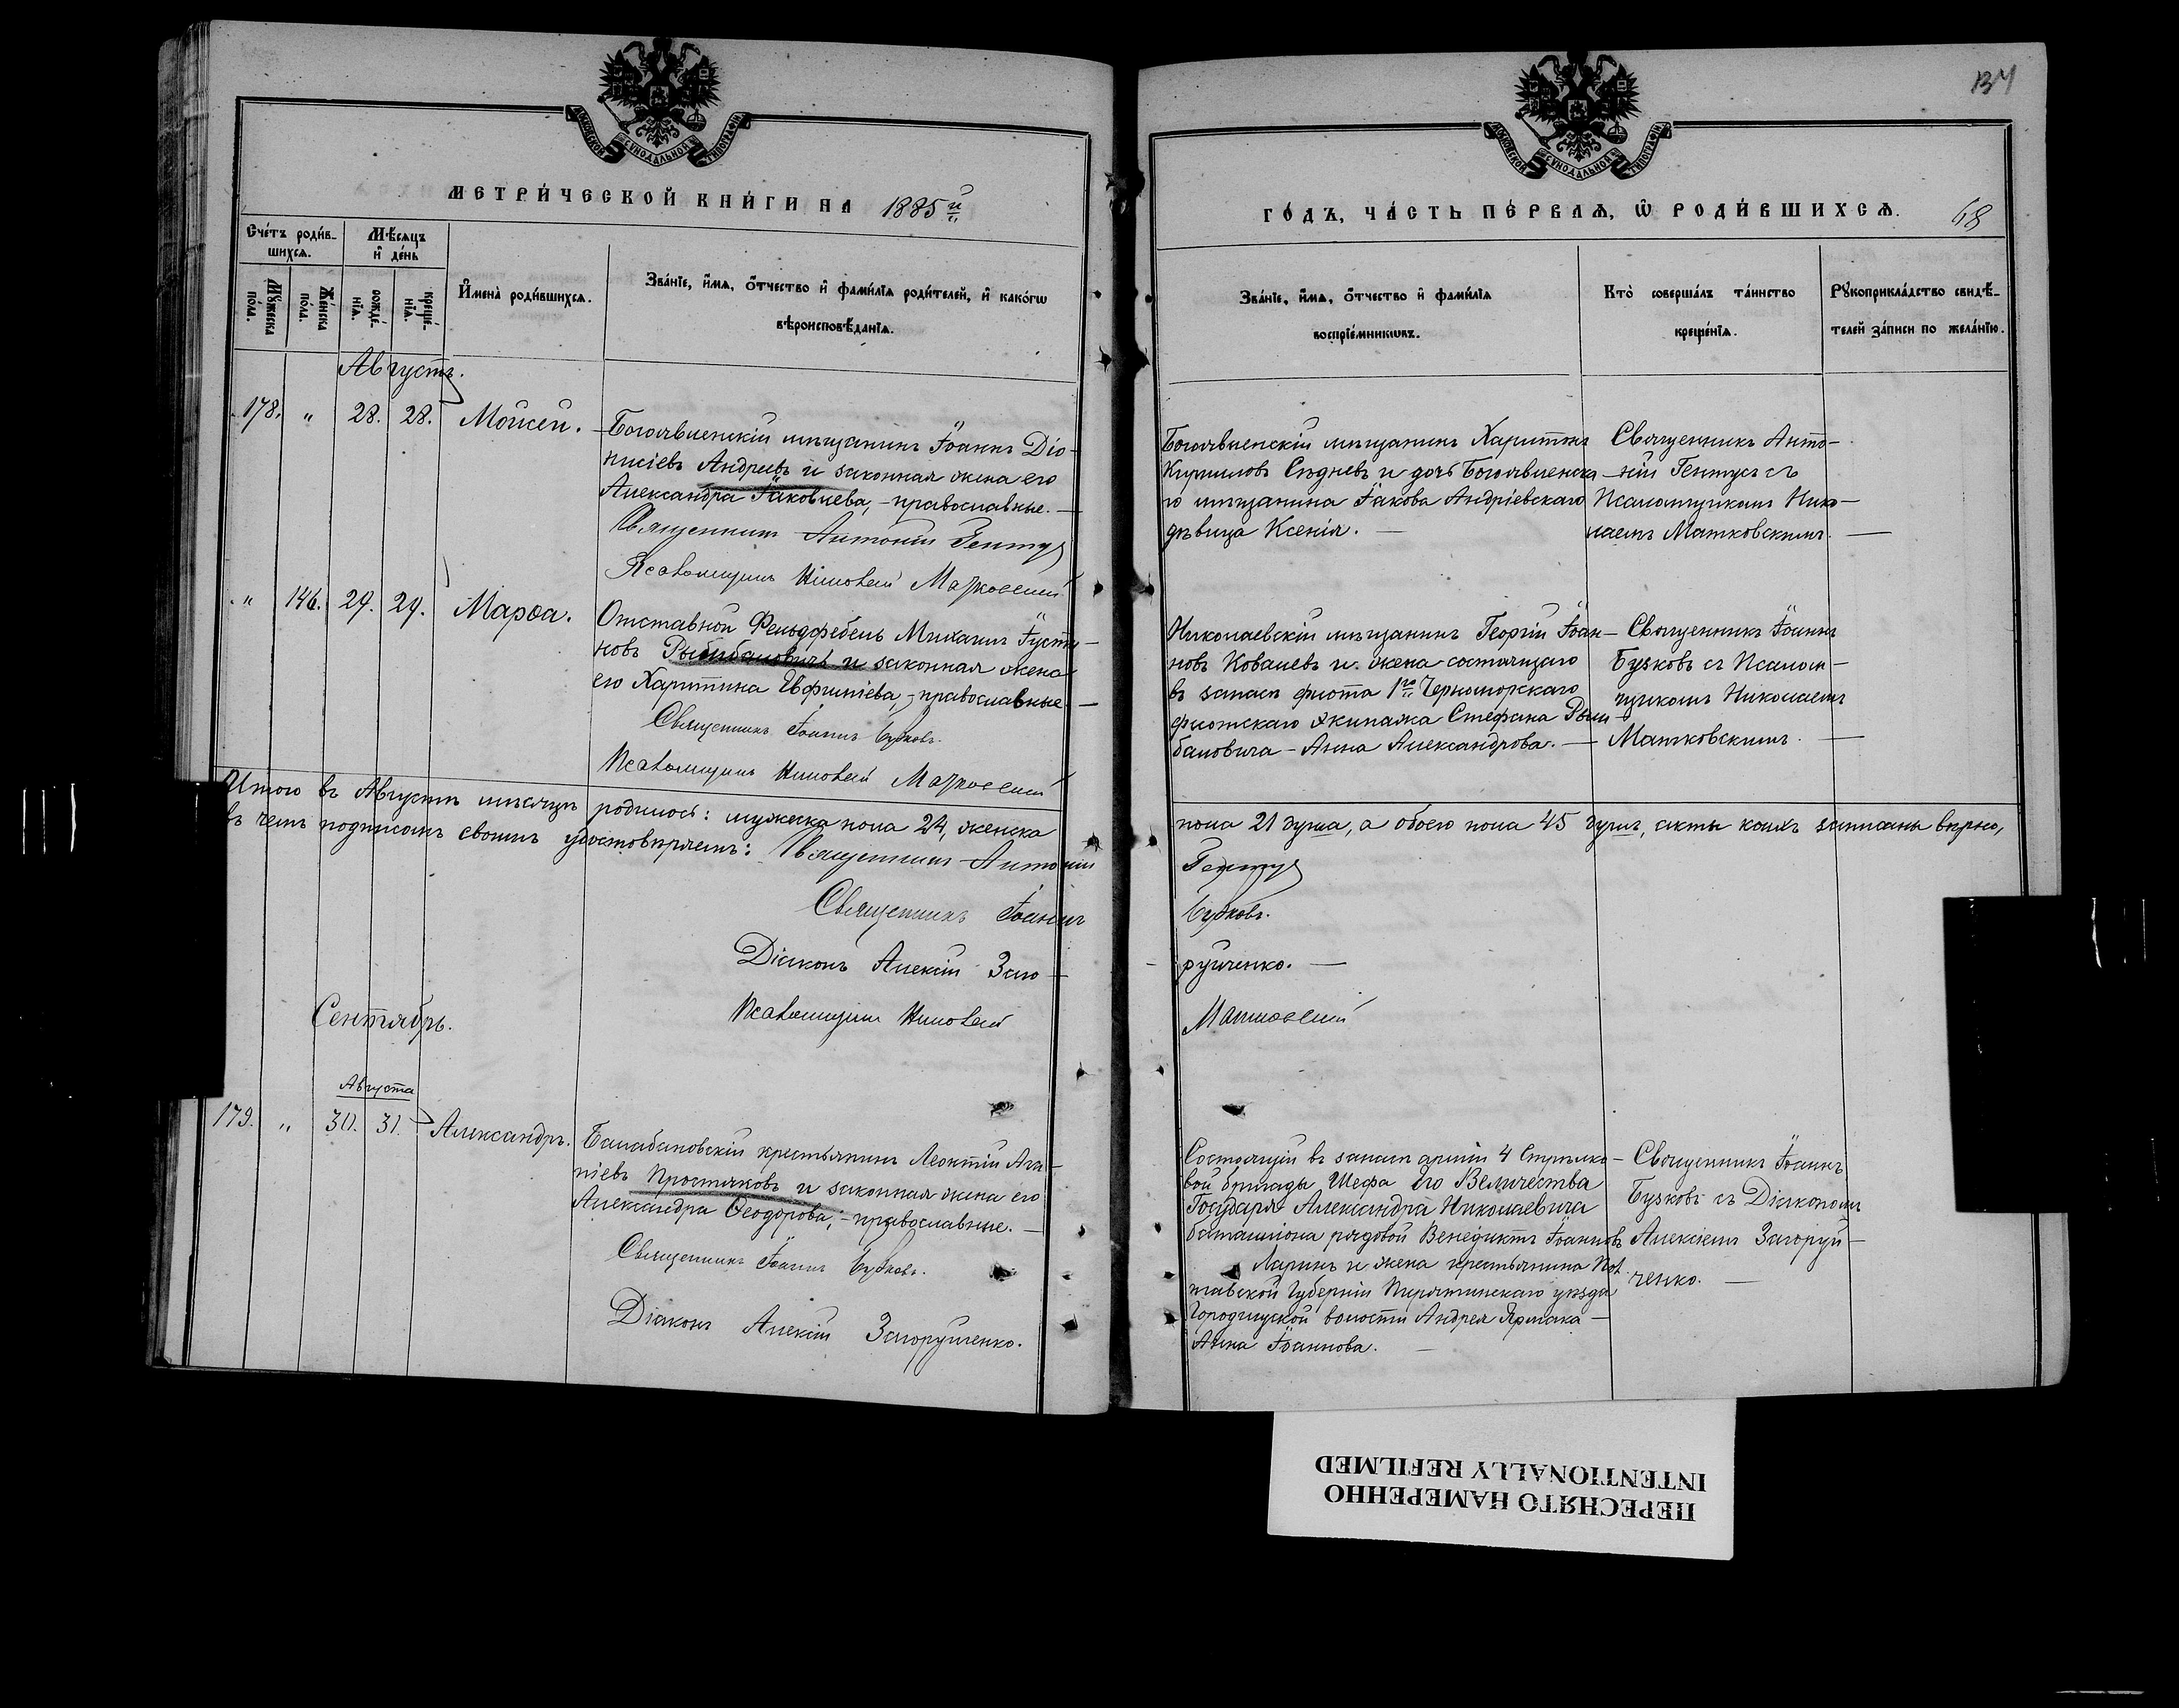 МОСКОВСКОЙ СѴНОДАЛЬНОЙ ТИПОГРАФІИ
МЕТРИ́ЧЕСКОЙ КНИ́ГИ НА 1885й
Сче́тъ роди́в-
шихсѧ.
Мꙋ́жеска по́ла.
Же́нска по́ла.
Мѣ́сѧцъ
и҆ де́нь
рожде́-
нїѧ.
креще́-
нїѧ.
И҆мена̀ роди́вшихсѧ.
Зва́нїе, и҆́мѧ, ѻ҆́тчество и҆ фами́лїѧ роди́телей, и҆ како́гѡ
вѣроисповѣ́данїѧ.
Августъ.
178. " 28. 28. Моѵсей.
Богоявленскій мѣщанинъ Іоаннъ Діо-
нисіевъ Андреевъ и законная жена его
Александра Іаковлева, - православные. -
Священникъ Антоній Гентуз
Псаломщикъ Николай Матковскій
" 146. 29. 29. Марѳа.
Отставной Фельдфебель Михаилъ Іусти-
новъ Рыбибановичъ и законная жена
его Харитина Евфиміева, - православные -
Священникъ Іоаннъ Бузковъ.
Псаломщикъ Николай Матковскій
Итого въ Августѣ мѣсяцѣ родилось: мужеска пола 24, женска
въ чемъ подписомъ своимъ удостовѣряемъ: Священникъ Антоній
Священникъ Іоаннъ
Діаконъ Алексій Заго-
Псаломщикъ Николай
Сентябрь.
Августа
179. " 30. 31. Александръ.
Балабановскій крестьянинъ Леонтій Ага-
піевъ Простяковъ и законная жена его
Александра Ѳеодорова, - православные. -
Священникъ Іоаннъ Бузковъ.
Діаконъ Алексій Загоруйченко.
134
МОСКОВСКОЙ СѴНОДАЛЬНОЙ ТИПОГРАФІИ
ГО́ДЪ, ЧА́СТЬ ПЕ́РВАѦ, Ѡ҆ РОДИ́ВШИХСѦ. 68
Зва́нїе, и҆́мѧ, ѻ҆́тчество и҆ фами́лїѧ
воспрїе́мникѡвъ.
Кто̀ соверша́лъ та́инство
креще́нїѧ.
Рꙋкоприкла́дство свидѣ́-
телей за́писи по жела́нїю.
Богоявленскій мѣщанинъ Харитонъ
Кирилловъ Сѣдневъ и дочь Богоявленска-
го мѣщанина Іакова Андріевскаго
дѣвица Ксенія. -
Священникъ Анто-
ній Гентуз съ
Псаломщикомъ Нико-
лаемъ Матковскимъ. -
Николаевскій мѣщанинъ Георгій Іоан-
новъ Ковалевъ и жена состоящаго
въ запасѣ флота 1го Черноморскаго
флотскаго экипажа Стефана Рыби-
бановича - Анна Александрова. -
Священникъ Іоаннъ
Бузковъ съ Псалом-
щикомъ Николаемъ
Матковскимъ. -
пола 21 душа, а обоего пола 45 душъ, акты коихъ записаны вѣрно,
Гентуз
Бузковъ.
руйченко. -
Матковскій
Состоящій въ запасѣ арміи 4 Стрѣлко-
вой бригады Шефа Его Величества
Государя Александра Николаевича
баталліона рядовой Венедиктъ Іоанновъ
Ларинъ и жена крестьянина Пол-
тавской Губерніи Пирятинскаго уѣзда
Городищской волости Андрея Ярмака -
Анна Іоаннова. -
Священникъ Іоаннъ
Бузковъ съ Діакономъ
Алексіемъ Загоруй-
ченко. -
ПЕРЕСНЯТО НАМЕРЕННО
INTENTIONALLY REFILMED